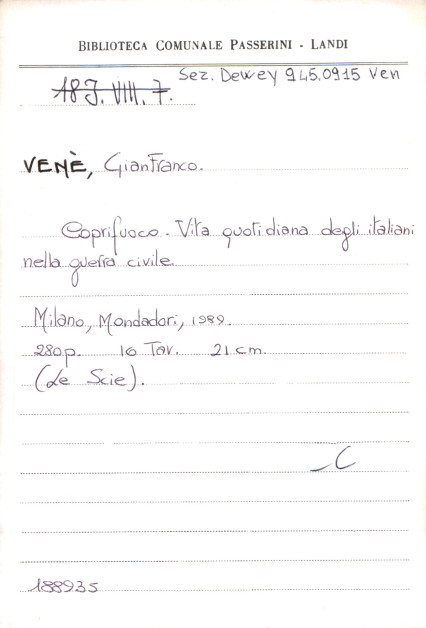 BIBLIOTECA COMUNALE PASSERINI - LANDI
Sez. Dewey 945.0915 Ven
18 J. VIII. 7.
VENÈ, GianFranco.
Coprifuoco. Vita quotidiana degli italiani
nella guerra civile.
Milano, Mondadori, 1989.
280p. 16 Tav. 21 cm.
(Le Scie).
C
188935